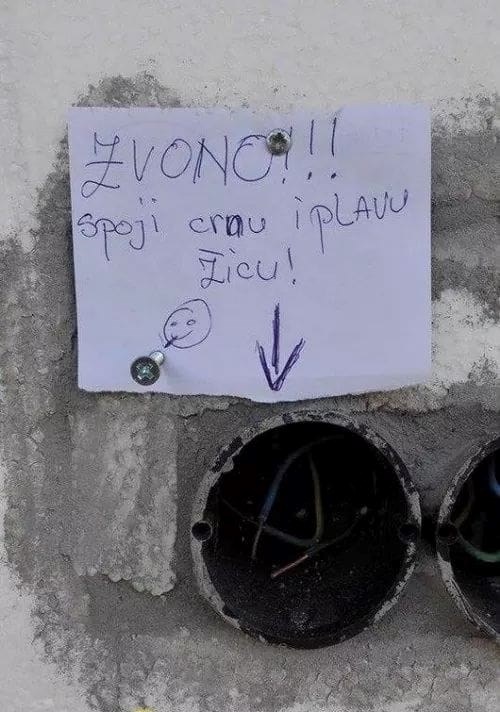 ZVONO!!!
spoji crnu i plavu
žicu!